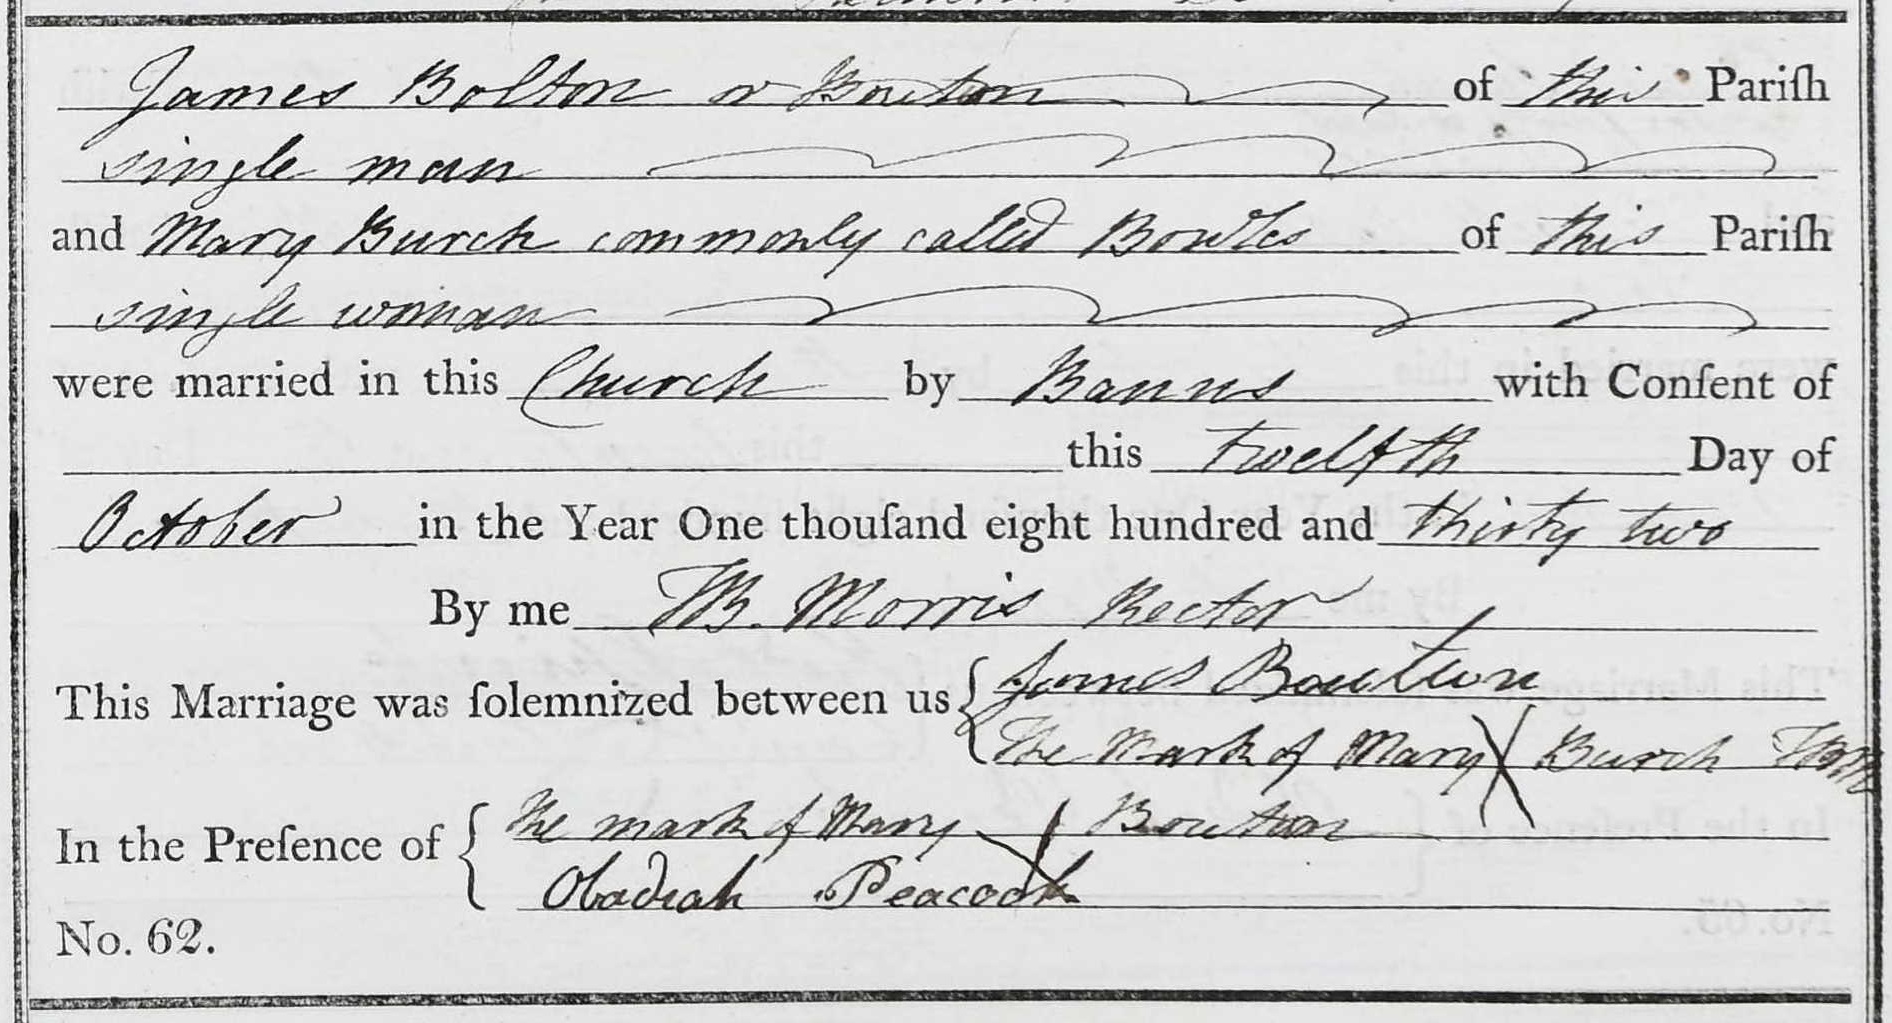 James Bolton or Bowton of this Pariſh
single man
and Mary Burch commonly called Bowles of this Pariſh
single woman
were married in this Church by Banns with Conſent of
this twelfth Day of
October in the Year One thouſand eight hundred and thirty two
By me TB. Morris Rector
This Marriage was ſolemnized between us { James Boutwn
The Mark of Mary X Burch TBM
In the Preſence of { The mark of Mary X Bowton
Obadiah Peacock
No. 62.